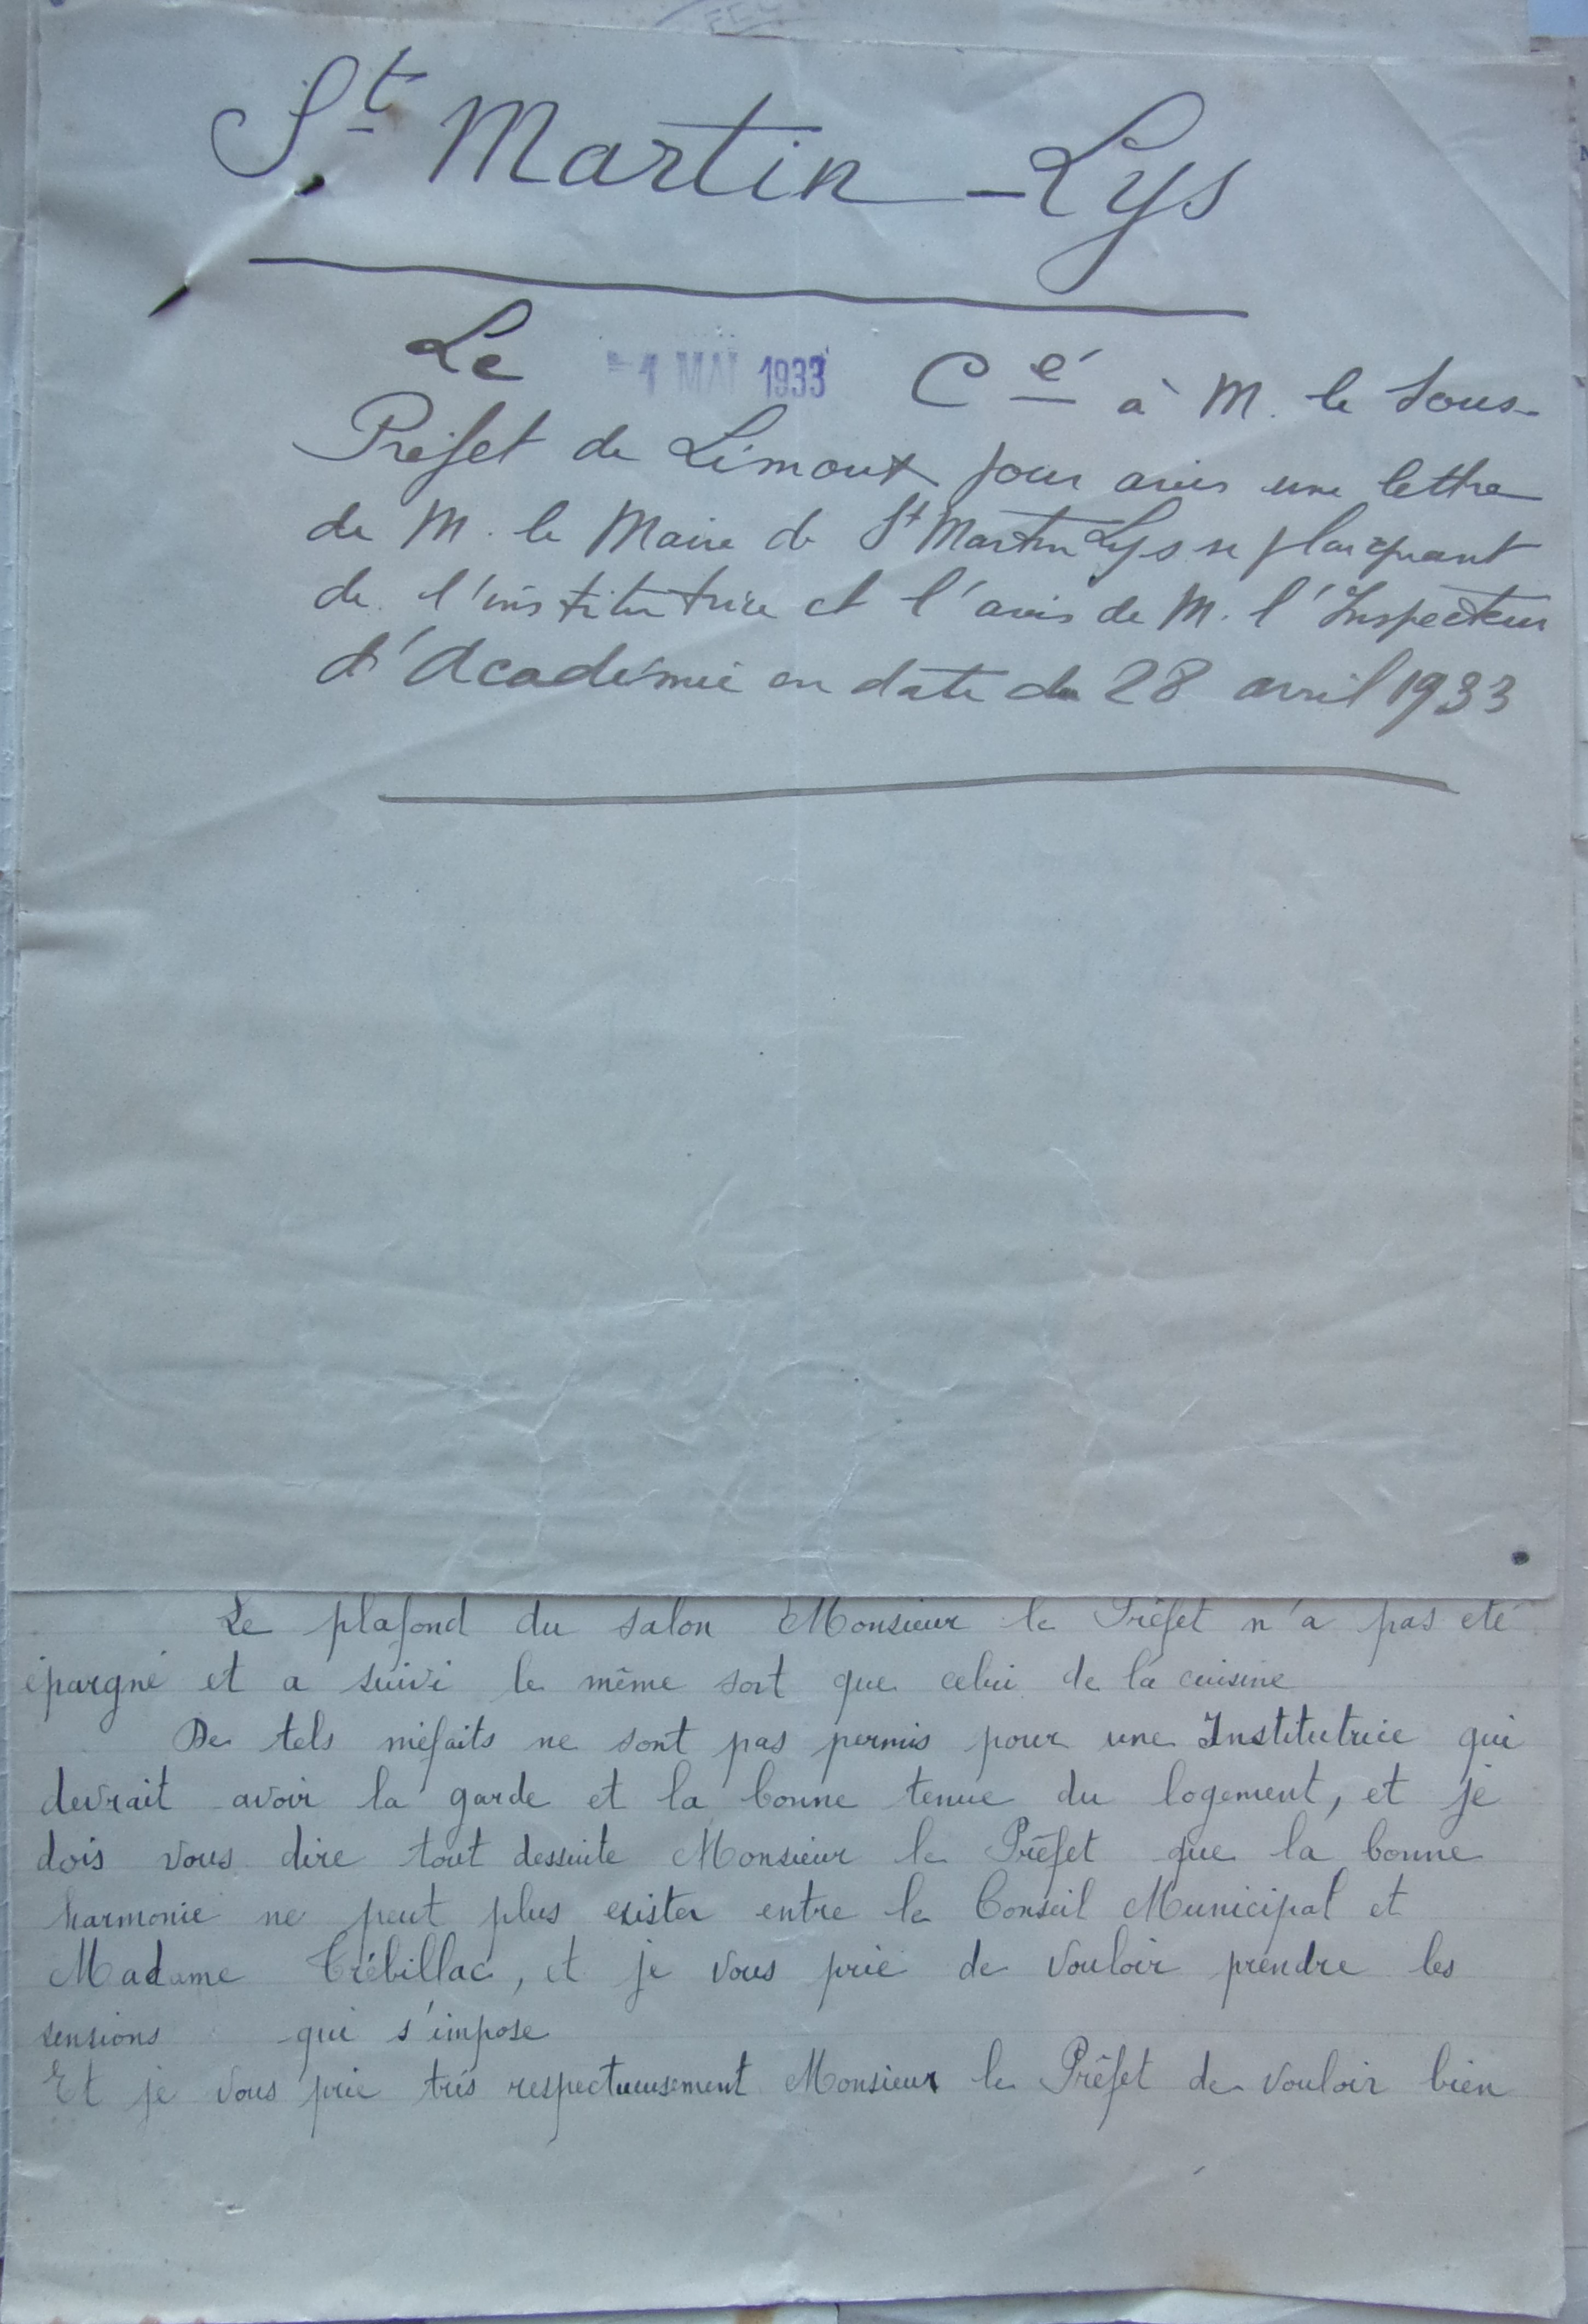 St Martin-Lys
Le -1 MAI 1933 Cé à M. le Sous-
Préfet de Limoux pour avis une lettre
de M. le Maire de St Martin Lys se plaignant
de l'institutrice et l'avis de M. l'Inspecteur
d'Académie en date du 28 avril 1933
Le plafond du salon Monsieur le Préfet n'a pas eté
épargné et a suivi le même sort que celui de la cuisine
De tels méfaits ne sont pas permis pour une Institutrice qui
devrait avoir la garde et la bonne tenue du logement, et je
dois vous dire tout dessuite Monsieur le Préfet que la bonne
harmonie ne peut plus exister entre le Conseil Municipal et
Madame Trébillac, et je vous prie de vouloir prendre les
sensions qui s'impose
Et je vous prie très respectueusement Monsieur le Préfet de vouloir bien